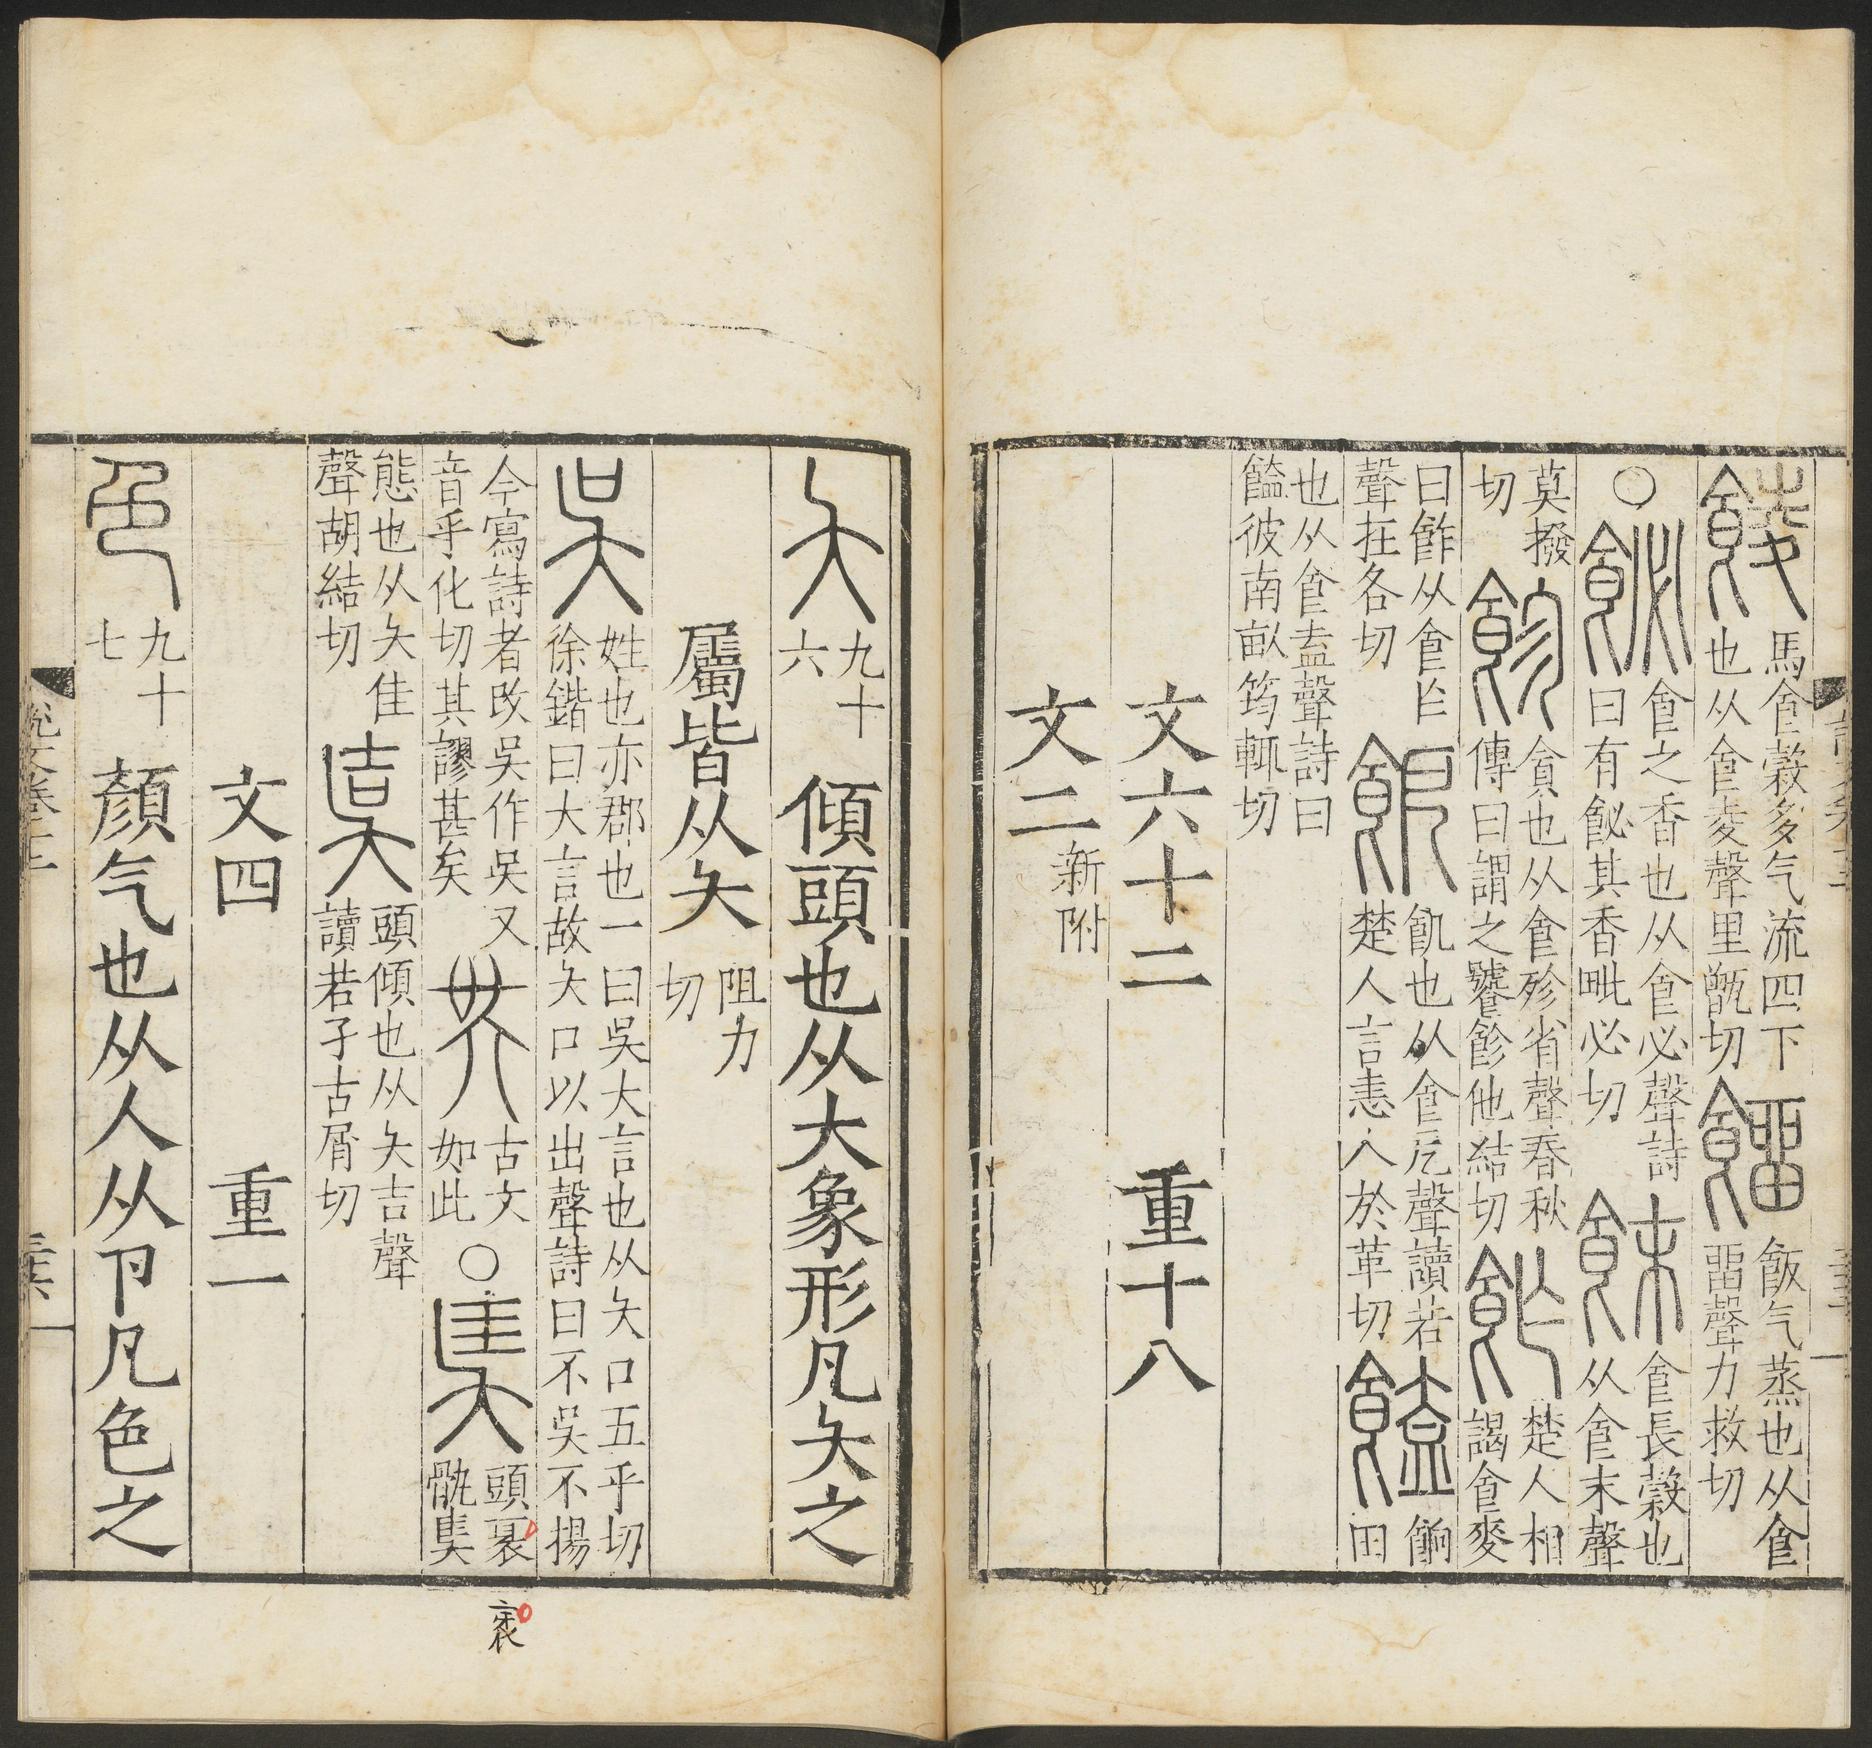 䬋馬食穀多气流四下
也从食夌聲里甑切
餾飯气蒸也从食
畱聲力救切
○飶食之香也从食必聲詩
曰有飶其香毗必切
䬴食長穀也
从食末聲
莫撥
切
飻貪也从食殄省聲春秋
傳曰謂之饕飻他結切
飵楚人相
謁食麥
曰飵从食乍
聲在各切
䬣飢也从食戹聲讀若
楚人言恚人於革切
饁餉田
也从食盍聲詩曰
饁彼南畝筠輒切
文六十二 重十八
文二新附
夨九十六 傾頭也从大象形凡夨之
屬皆从夨阻力切
吳姓也亦郡也一曰吳大言也从夨口五乎切
徐鍇曰大言故夨口以出聲詩曰不吳不揚
今寫詩者改吳作吴又
音乎化切其謬甚矣
古文
如此
○奊頭衺
骫奊
態也从夨圭
聲胡結切
頭傾也从夨吉聲
讀若孑古屑切
文四 重一
色九十七 顏气也从人从卪凡色之
衺